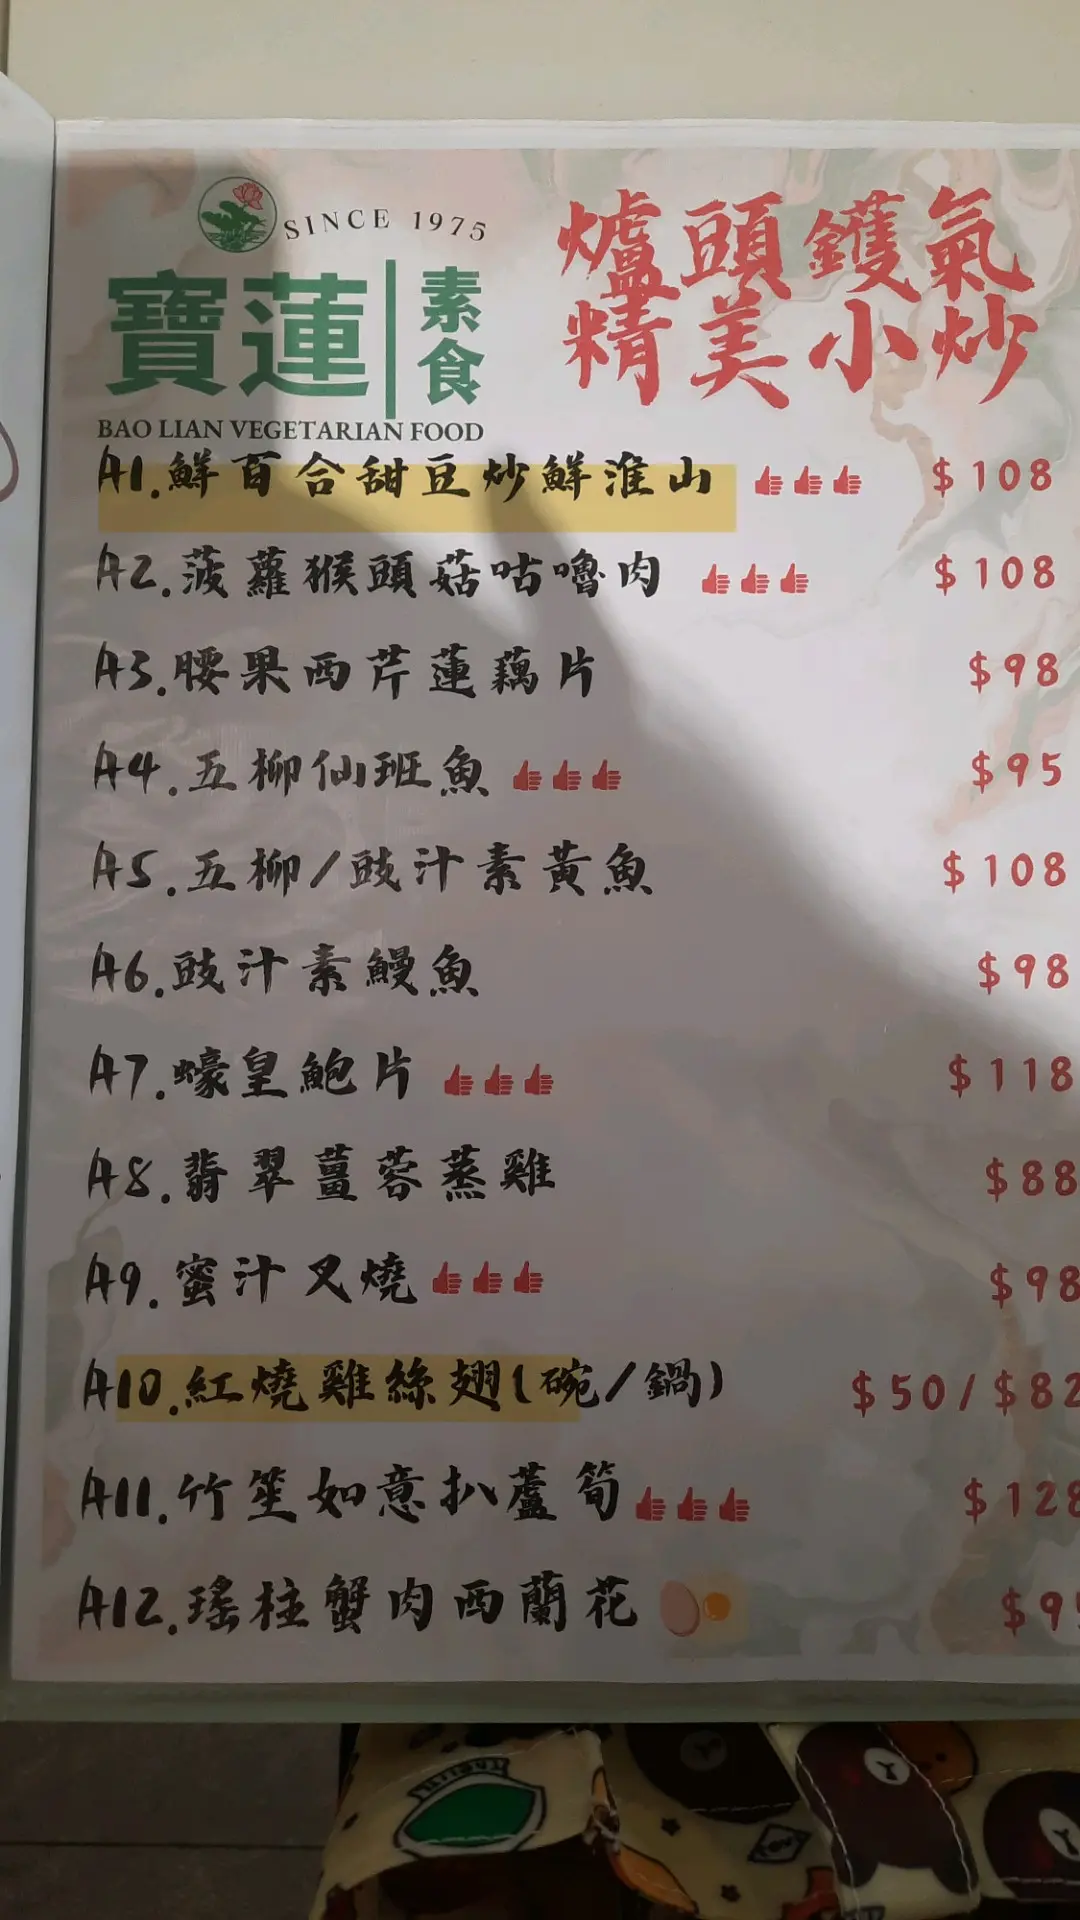 SINCE 1975
寶蓮 素食
BAO LIAN VEGETARIAN FOOD
爐頭鑊氣
精美小炒
A1.鮮百合甜豆炒鮮淮山 $108
A2.菠蘿猴頭菇咕嚕肉 $108
A3.腰果西芹蓮藕片 $98
A4.五柳仙班魚 $95
A5.五柳/豉汁素黃魚 $108
A6.豉汁素鰻魚 $98
A7.蠔皇鮑片 $118
A8.翡翠薑蓉蒸雞 $88
A9.蜜汁叉燒 $98
A10.紅燒雞絲翅(碗/鍋) $50/$82
A11.竹笙如意扒蘆筍 $128
A12.瑤柱蟹肉西蘭花